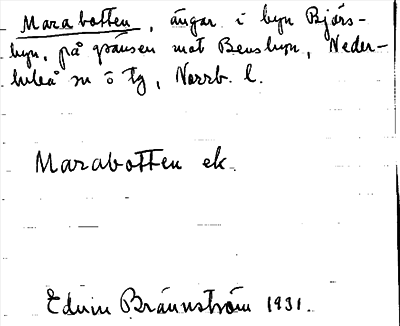 Marabotten, ängar i byn Björs-
byn, på gränsen mot Bensbyn, Neder-
luleå sn ö tg, Norrb. l.
Marabotten ek.
Edvin Brännström 1931.